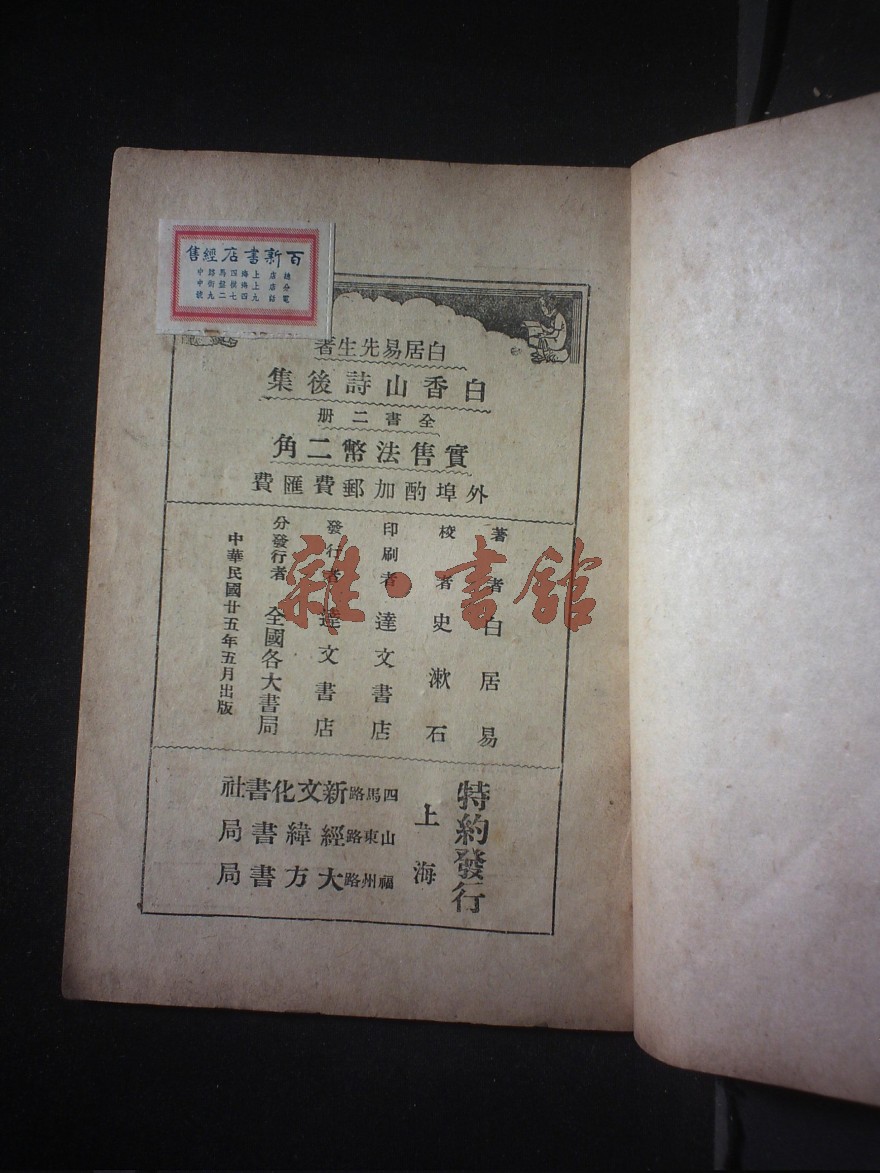 百新書店經售
總店上海四馬路中
分店上海棋盤街中
電話九四七二九號
白居易先生著
白香山詩後集
全書二册
實售法幣二角
外埠酌加郵費匯費
著者白居易
校者史漱石
印刷者達文書店
發行者達文書店
分發行者全國各大書局
中華民國廿五年五月出版
特約發行
上海
四馬路新文化書社
山東路經緯書局
福州路大方書局
雜·書館